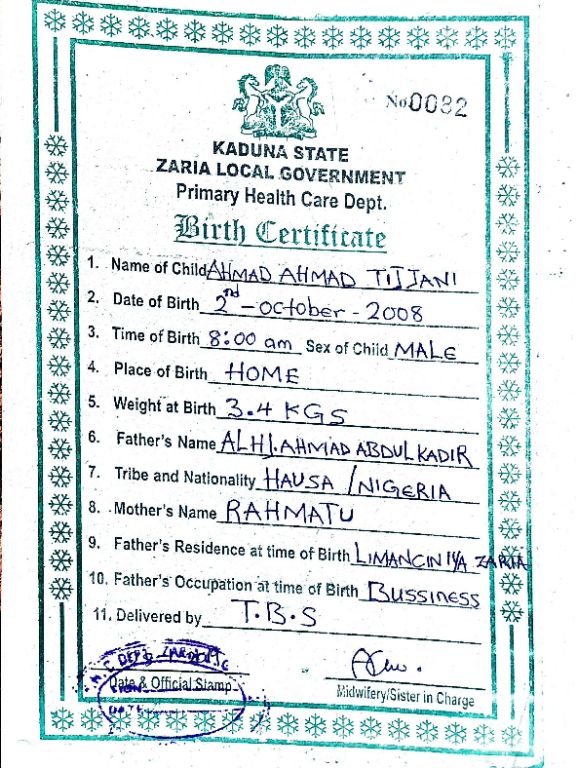 No 0032
KADUNA STATE
ZARIA LOCAL GOVERNMENT
Primary Health Care Dept.
Birth Certificate
1. Name of Child AHMAD AHMAD TIJJANI
2. Date of Birth 2nd - October - 2008
3. Time of Birth 8:00 am Sex of Child MALE
4. Place of Birth HOME
5. Weight at Birth 3.4 KGS
6. Father's Name ALHJ. AHMAD ABDULKADIR
7. Tribe and Nationality HAUSA / NIGERIA
8. Mother's Name RAHMATU
9. Father's Residence at time of Birth LIMANCIN IYA ZARIA
10. Father's Occupation at time of Birth BUSSINESS
11. Delivered by T.B.S
Date & Official Stamp
Midwifery/Sister in Charge